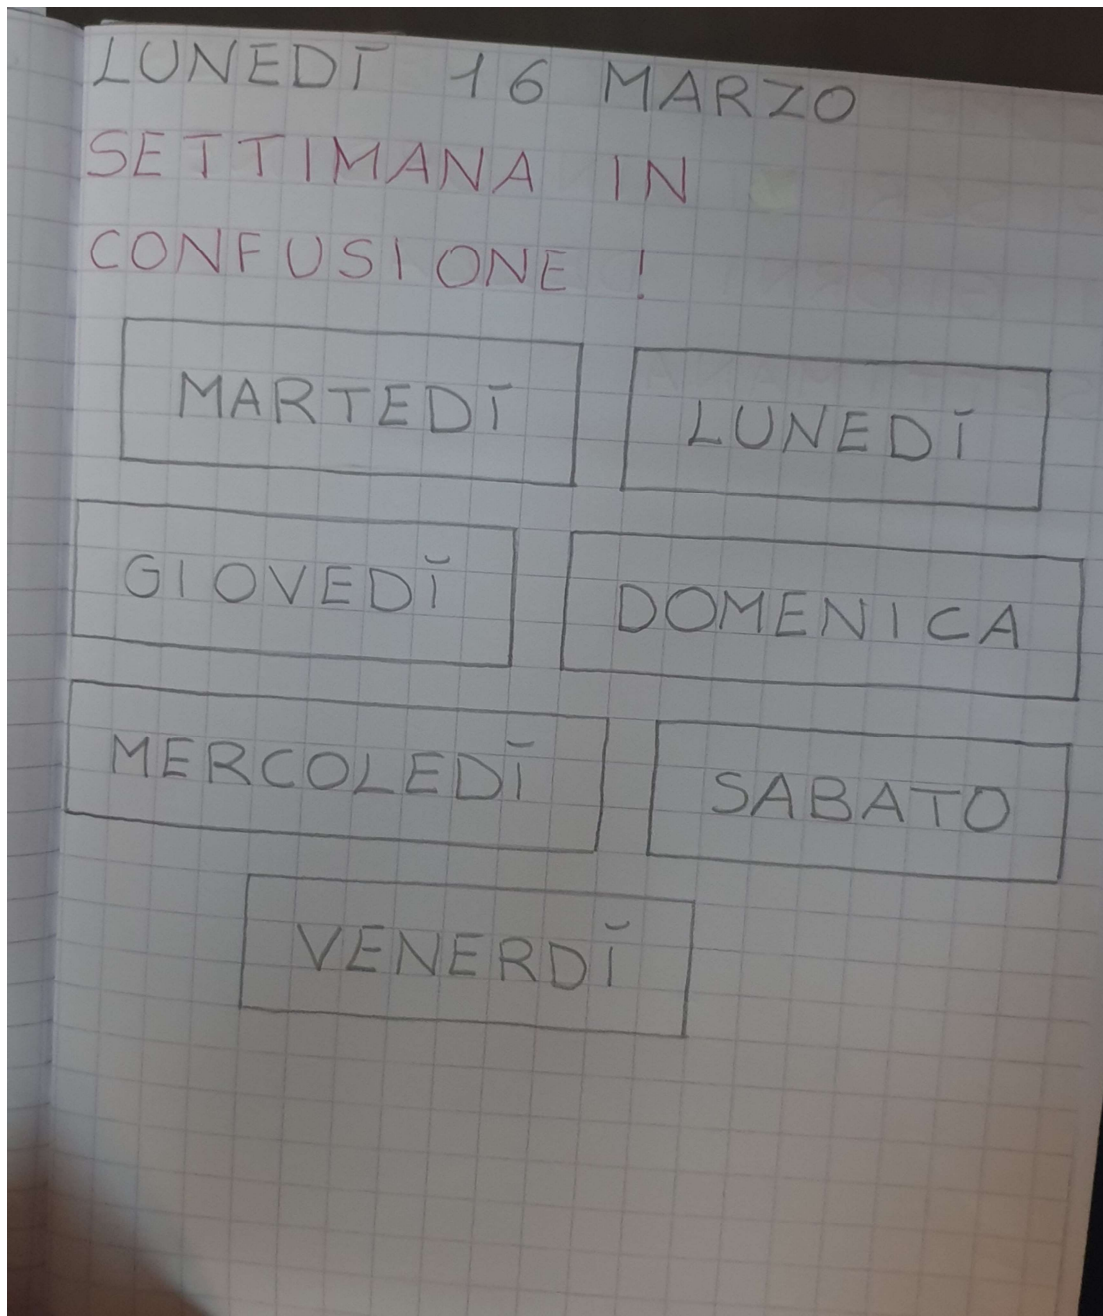 LUNEDÌ 16 MARZO
SETTIMANA IN
CONFUSIONE !
MARTEDÌ LUNEDÌ
GIOVEDÌ DOMENICA
MERCOLEDÌ SABATO
VENERDÌ